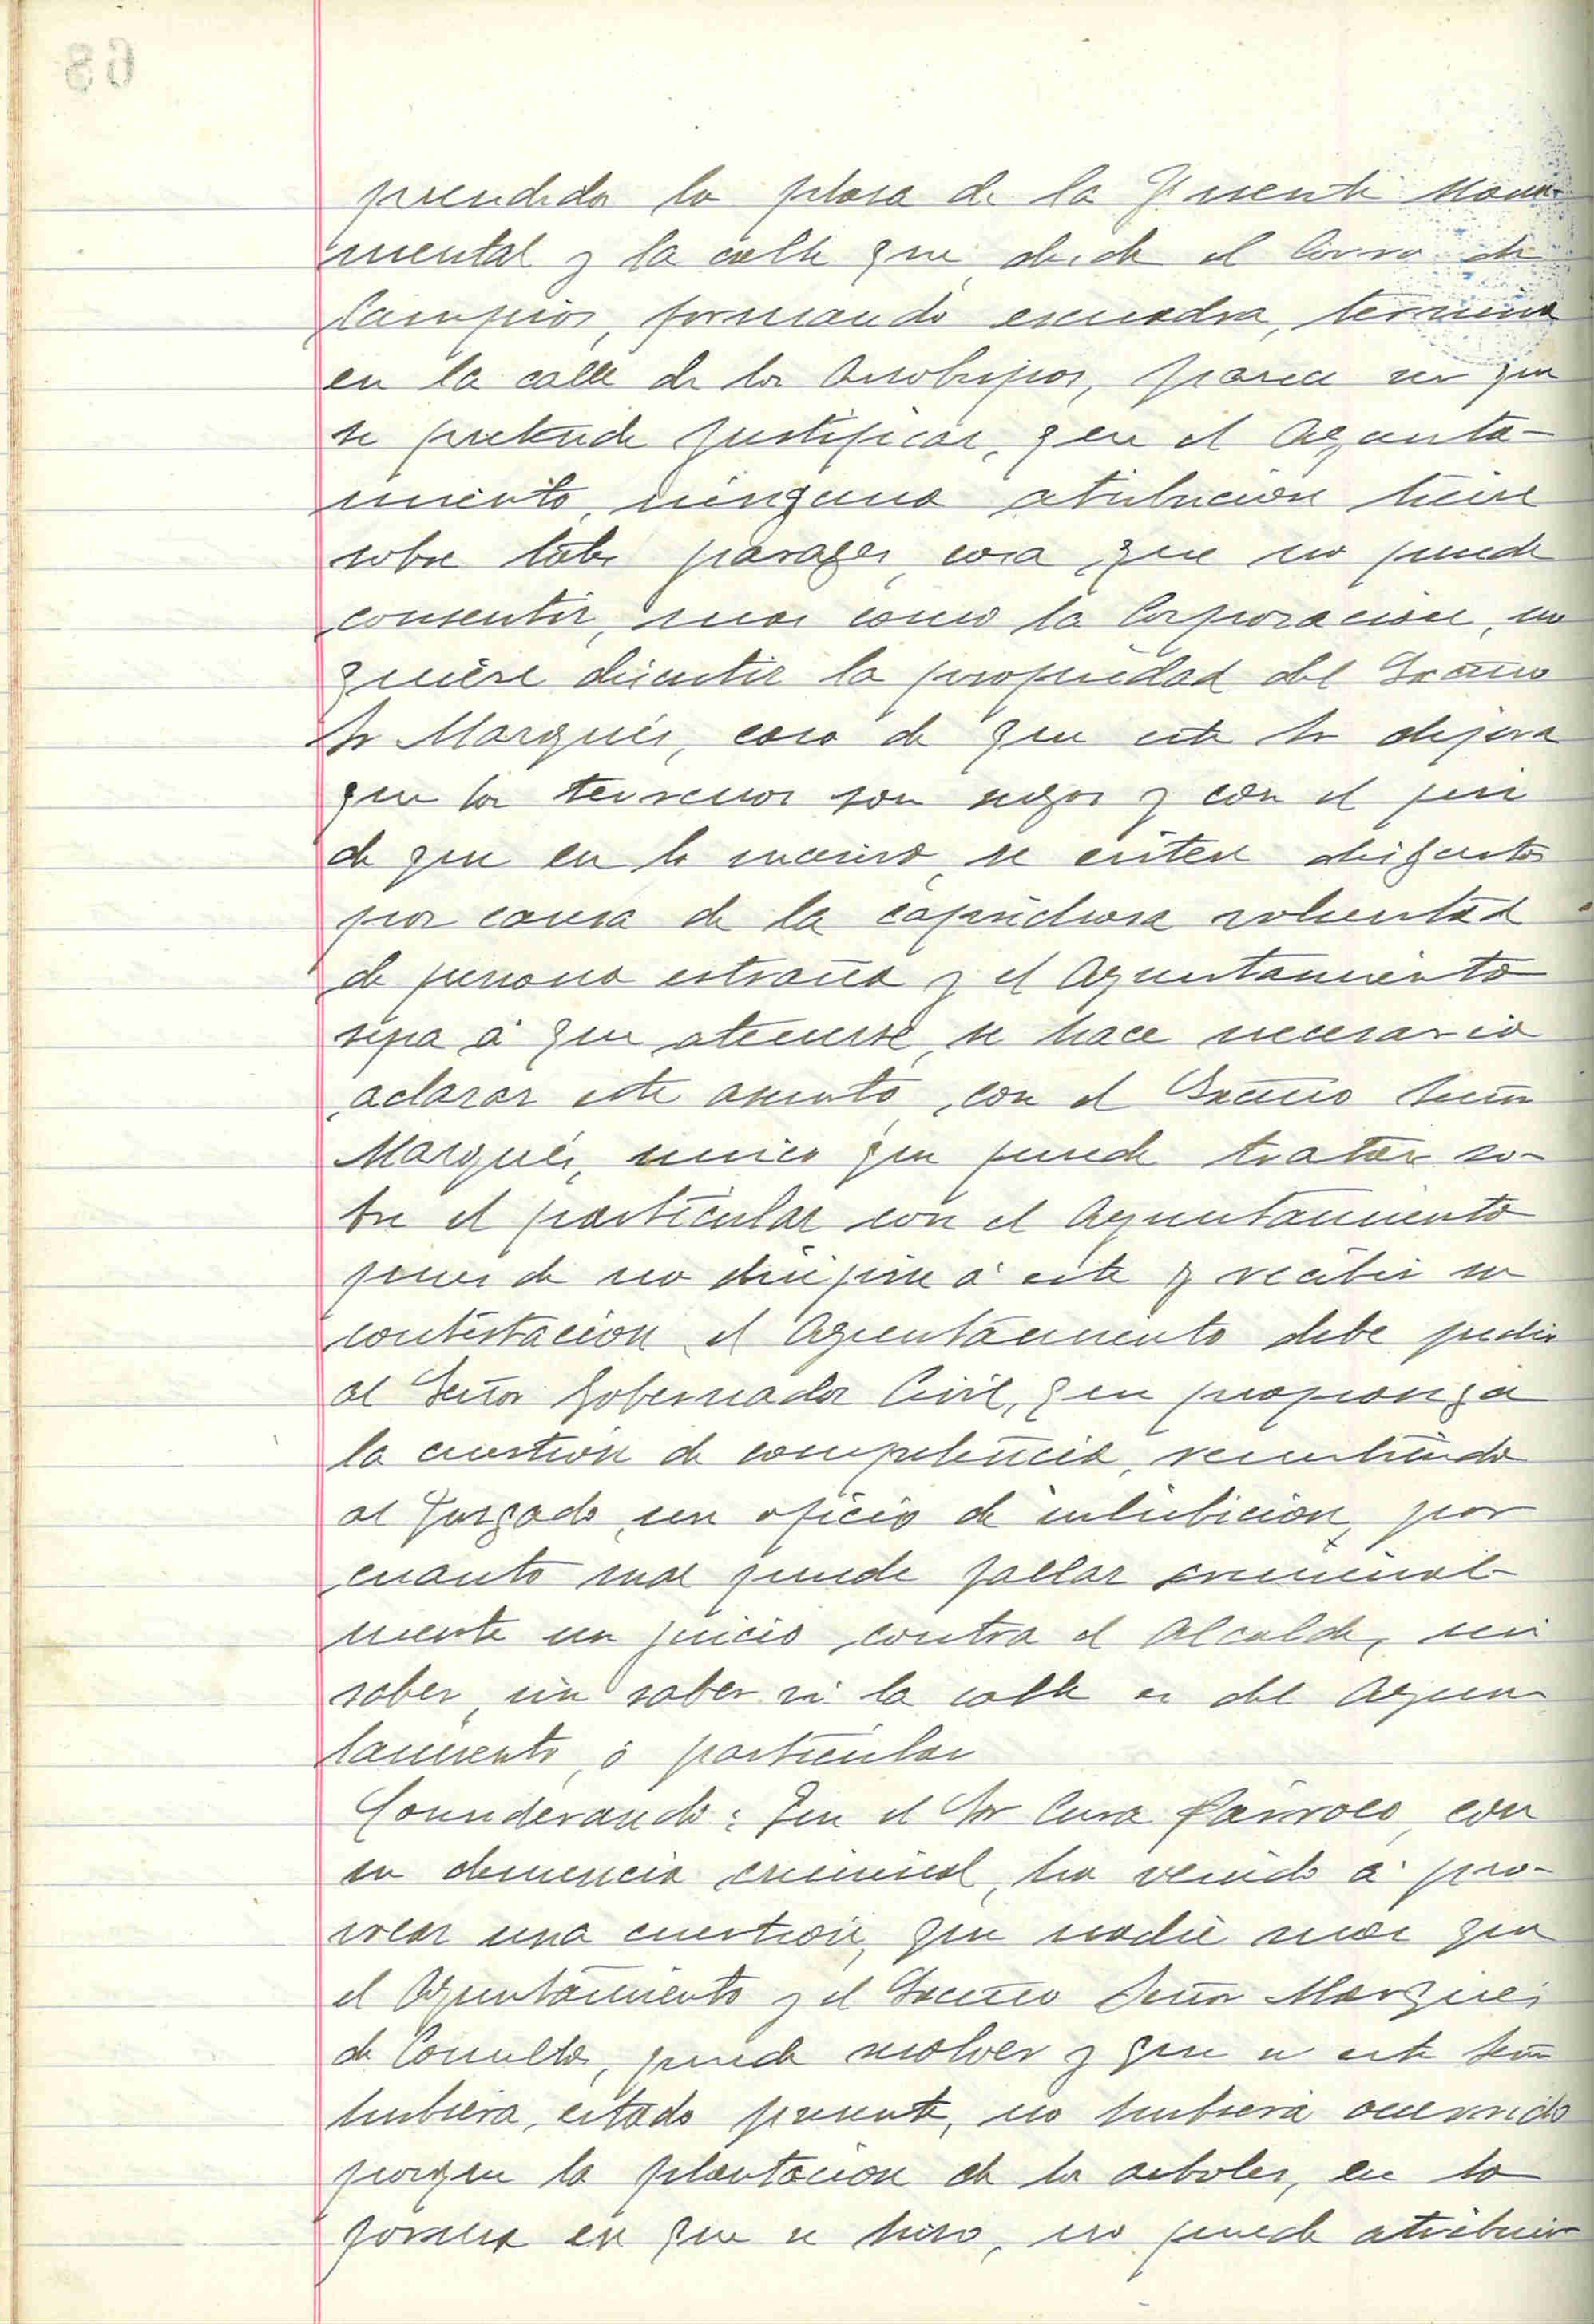 prendida la plasa de la Fuente Monu-
mental y la calle que desde el Corro de
Campios, formando escuadra, termina
en la calle de los Arsobispos, parece ser que
se pretende justificar, que el Ayunta-
miento, ninguna atribucion tiene
sobre tales parages, cosa que no puede
consentir, mas como la Corporacion, no
quiere discutir la propiedad del Excmo
Sr Marqués, caso de que este Sr dijera
que los terrenos son suyos y con el fin
de que en lo sucesivo se eviten disgustos
por causa de la caprichosa voluntad
de persona estraña y el Ayuntamiento
sepa á que atenerse, se hace necesario
aclarar este asunto, con el Excmo Señor
Marqués, unico que puede tratar so-
bre el particular con el Ayuntamiento
pues de no dirijirse á este y recibir su
contestacion el Ayuntamiento debe pedir
al Señor Gobernador Civil, que proponga
la cuestion de competencia, remitiendo
al Jusgado, un oficio de inhibicion, por
cuanto mal puede fallar criminal-
mente un juicio contra el Alcalde, sin
saber, sin saber si la calle es del Ayun-
tamiento, ó particular
Considerando: Que el Sr Cura Párroco, con
su denuncia criminal, ha venido á pro-
vocar una cuestion, que nadie mas que
el Ayuntamiento y el Excmo Señor Marqués
de Comillas, puede resolver y que si este Señor
hubiera, estado presente, no hubiera ocurrido
porque la plantacion de los arboles, en la
forma en que se hiso, no puede atribuir